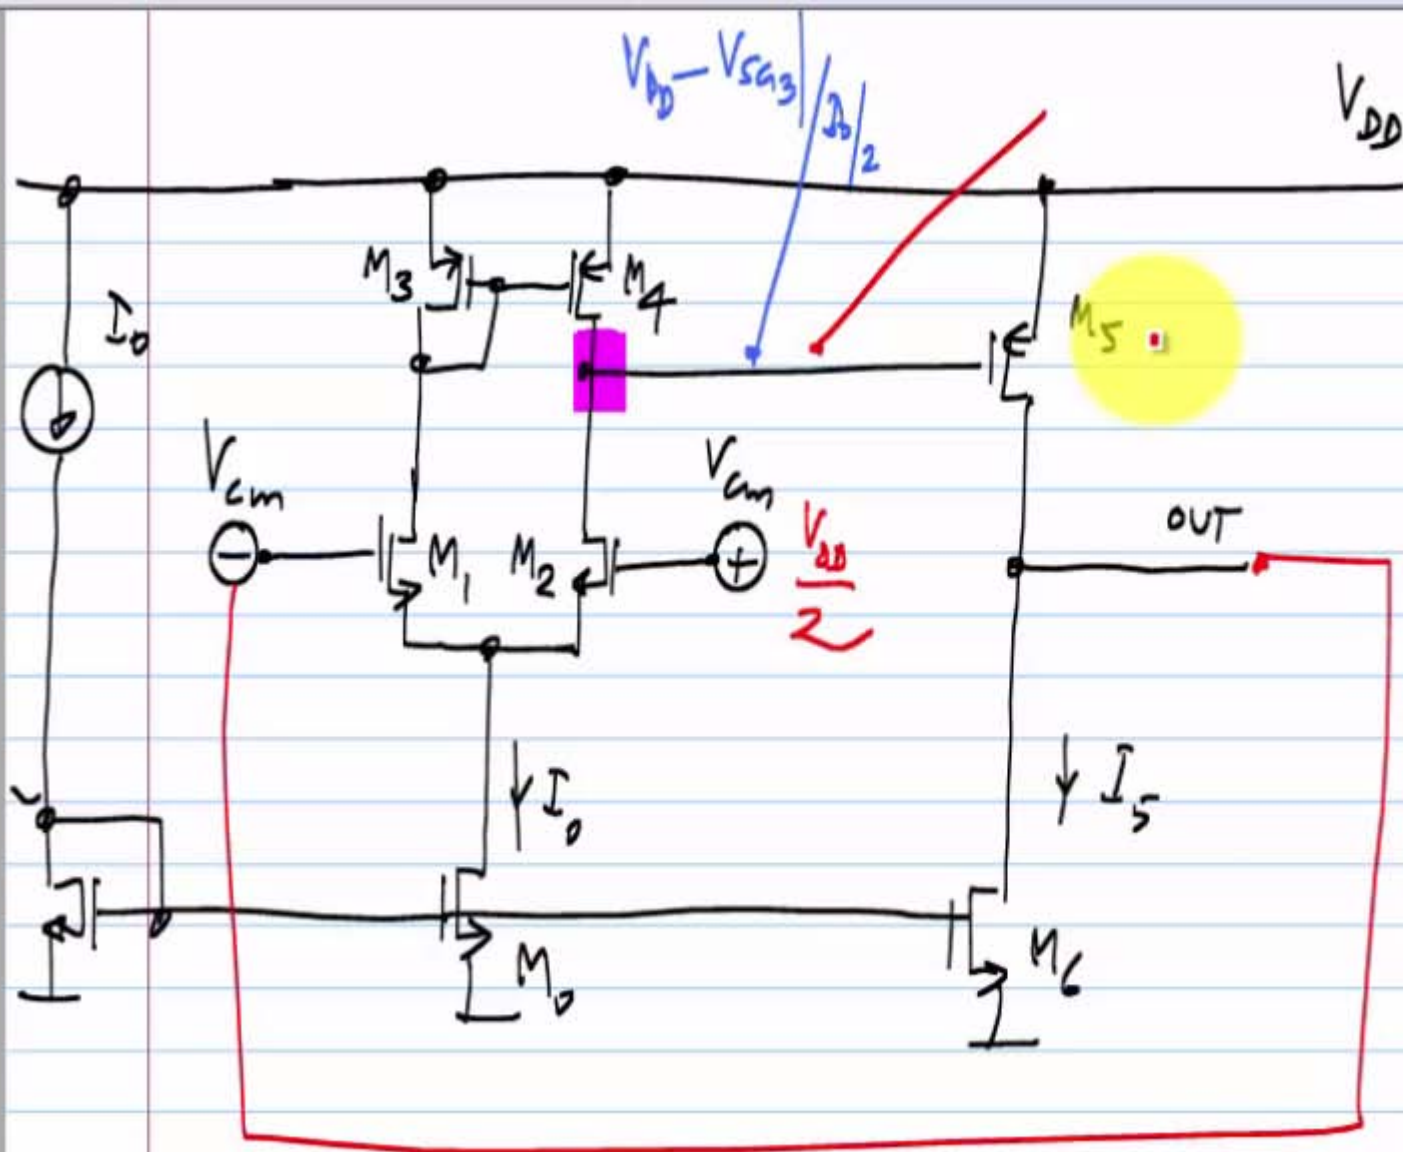 V_DD − V_SG3 | I_0/2
V_DD
M_3
M_4
I_0
M_5
V_cm
V_cm
OUT
−
M_1
M_2
+
V_DD/2
I_0
I_5
M_0
M_6